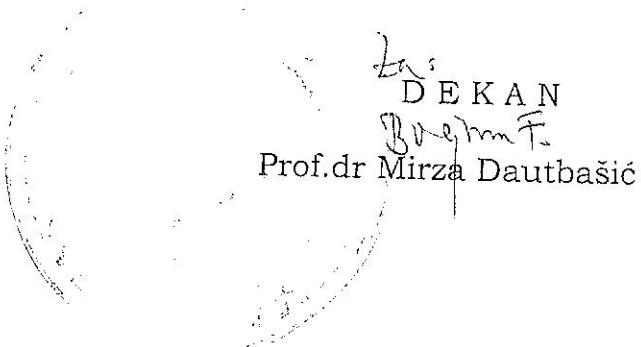 Za:
D E K A N
Prof.dr Mirza Dautbašić